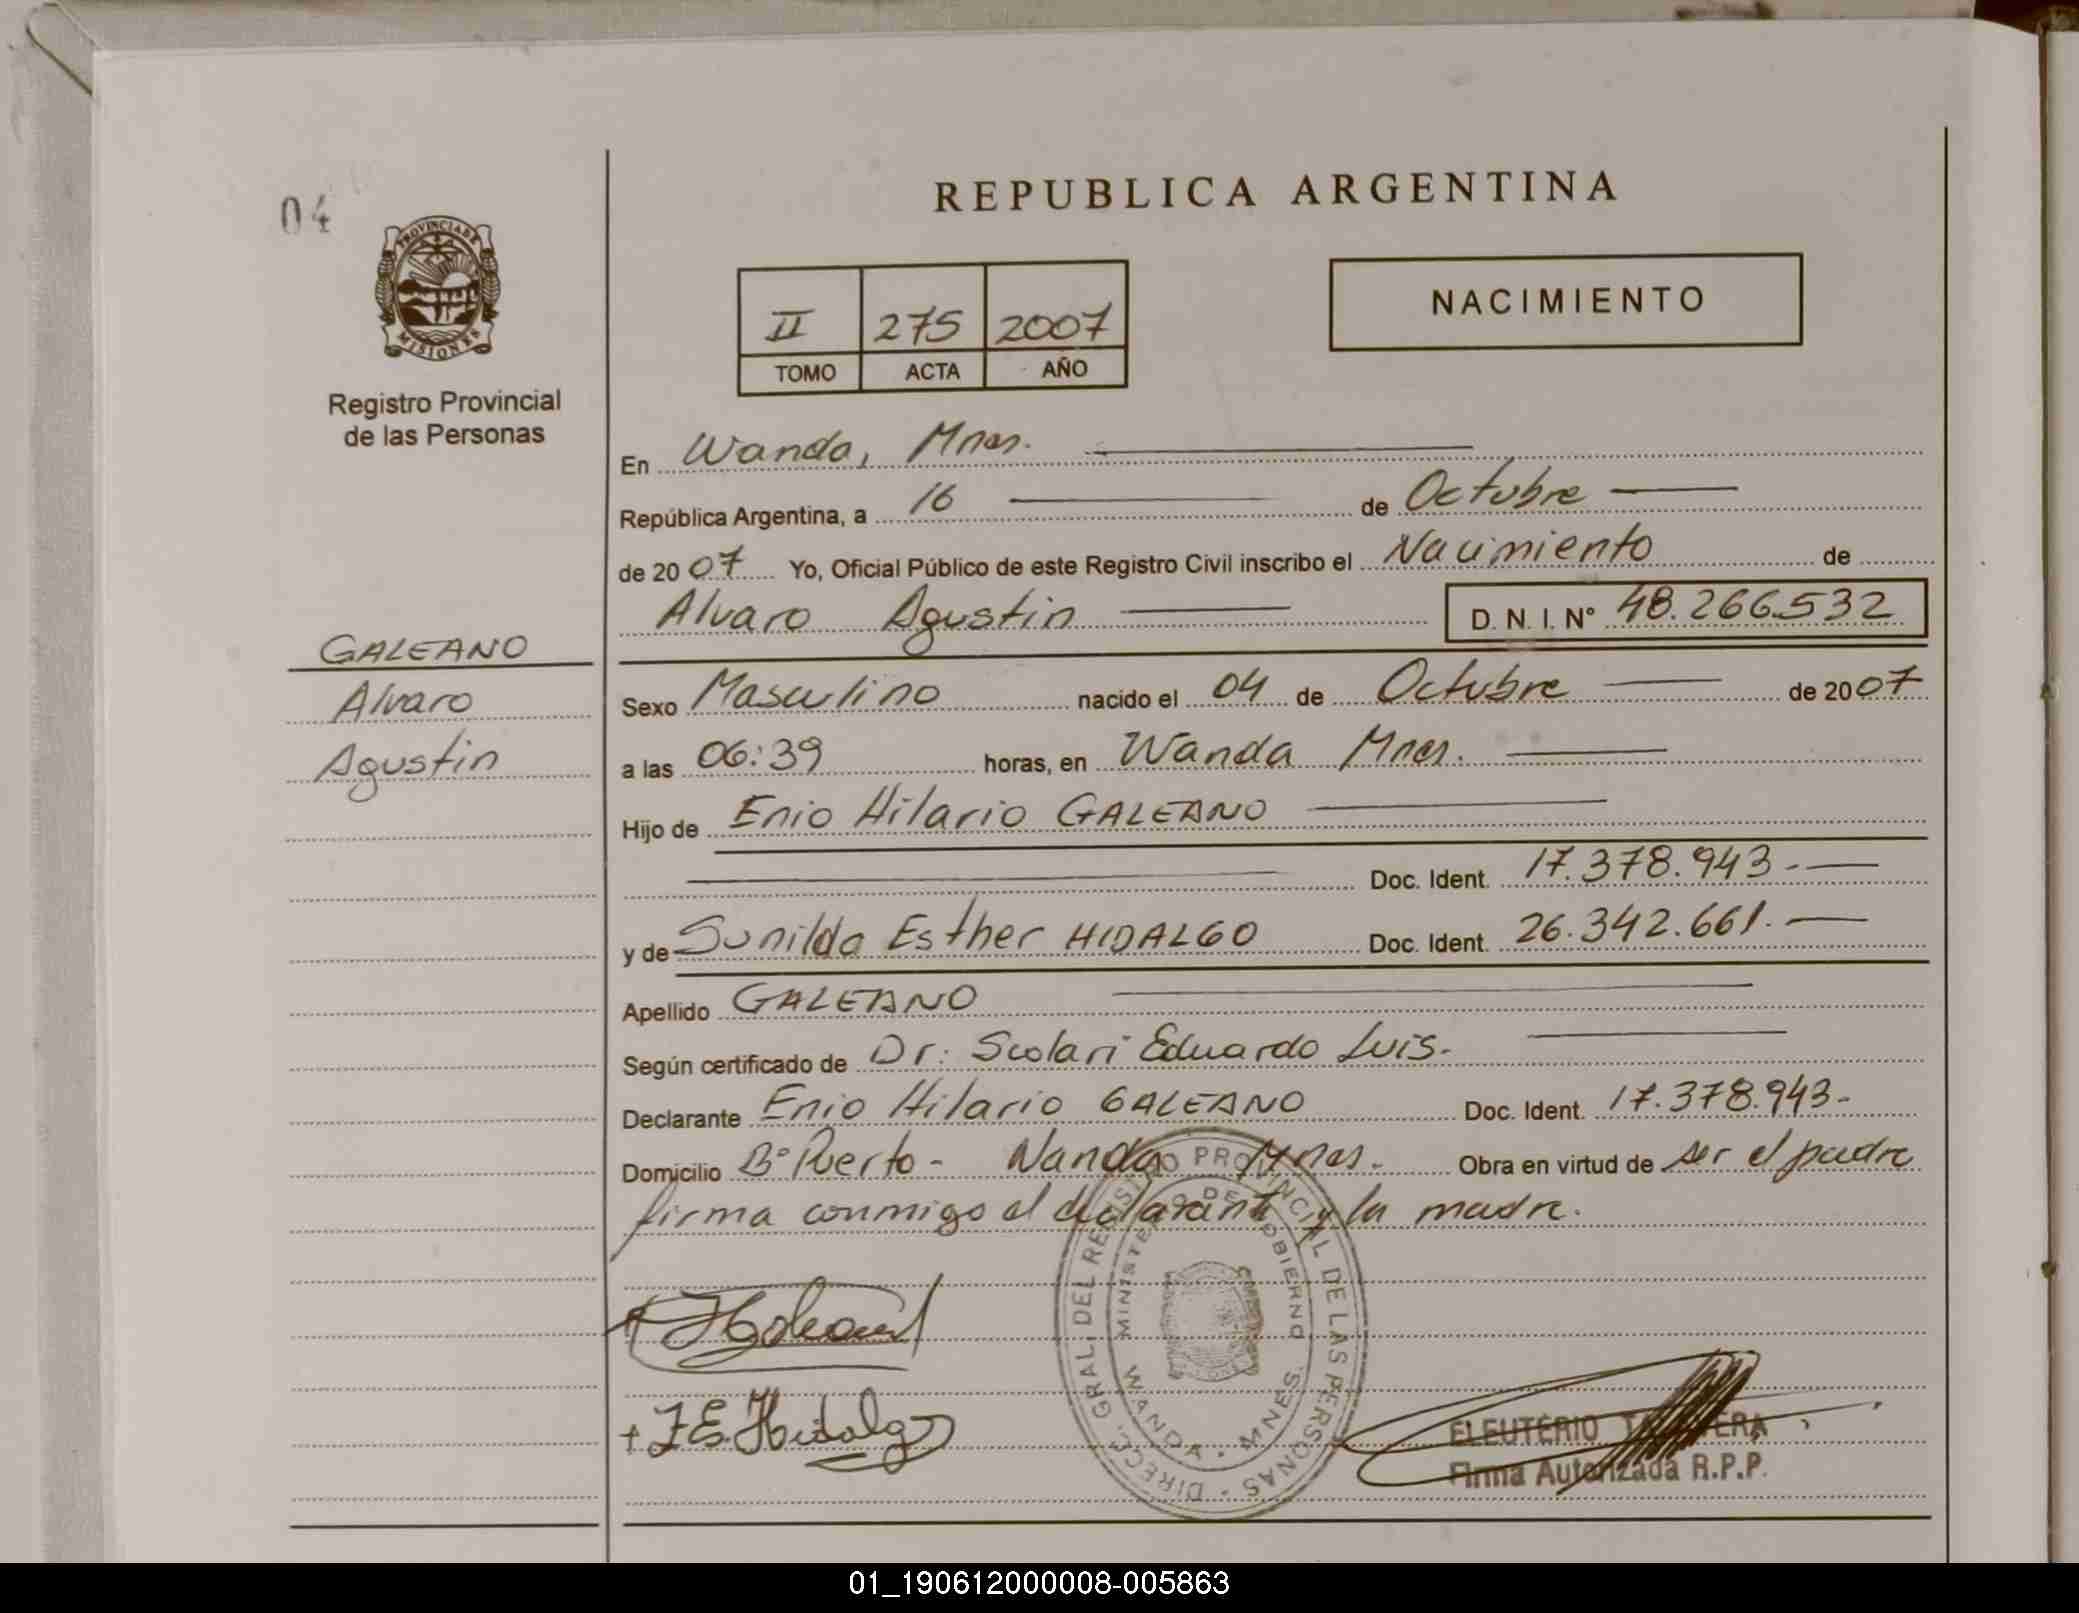 04
PROVINCIA DE
MISIONES
Registro Provincial
de las Personas
GALEANO
Alvaro
Agustin
REPUBLICA ARGENTINA
II 275 2007
TOMO ACTA AÑO
NACIMIENTO
En Wanda, Mnes.
República Argentina, a 16 de Octubre
de 2007 Yo, Oficial Público de este Registro Civil inscribo el Nacimiento de
Alvaro Agustin D. N. I. N° 48.266.532
Sexo Masculino nacido el 04 de Octubre de 2007
a las 06:39 horas, en Wanda Mnes.
Hijo de Enio Hilario GALEANO
Doc. Ident. 17.378.943.-
y de Sunilda Esther HIDALGO Doc. Ident. 26.342.661.-
Apellido GALEANO
Según certificado de Dr: Scolari Eduardo Luis.-
Declarante Enio Hilario GALEANO Doc. Ident. 17.378.943.-
Domicilio B° Puerto - Wanda Mnes. Obra en virtud de ser el padre
firma conmigo el declarante y la madre.
DIRECC. GRAL. DEL REGISTRO PROVINCIAL DE LAS PERSONAS
MINISTERIO DE GOBIERNO
WANDA - MNES.
Hidalgo
ELEUTERIO
Firma Autorizada R.P.P.
01_190612000008-005863